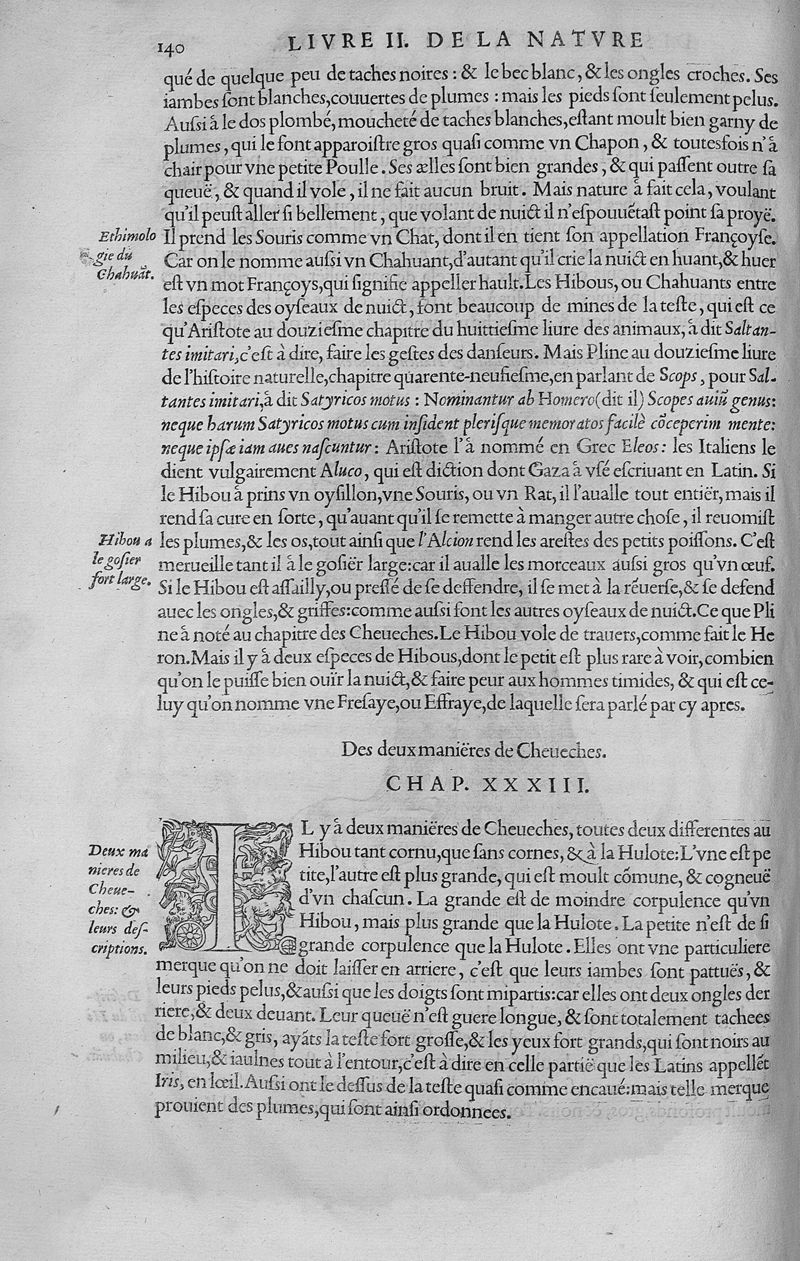 140
LIVRE II. DE LA NATVRE
qué de quelque peu de taches noires : & le bec blanc, & les ongles croches. Ses
iambes ſont blanches, couuertes de plumes : mais les pieds ſont ſeulement pelus.
Auſsi à le dos plombé, moucheté de taches blanches, eſtant moult bien garny de
plumes, qui le font apparoiſtre gros quaſi comme vn Chapon, & toutesfois n'à
chair pour vne petite Poulle. Ses ælles ſont bien grandes, & qui paſſent outre ſa
queuë, & quand il vole, il ne fait aucun bruit. Mais nature à fait cela, voulant
qu'il peuſt aller ſi bellement, que volant de nuict il n'eſpouuëtaſt point ſa proyë.
Ethimolo
gie du
Chahuãt.
Il prend les Souris comme vn Chat, dont il en tient ſon appellation Françoyſe.
Car on le nomme auſsi vn Chahuant, d'autant qu'il crie la nuict en huant, & huer
eſt vn mot Françoys, qui ſignifie appeller hault. Les Hibous, ou Chahuants entre
les eſpeces des oyſeaux de nuict, font beaucoup de mines de la teſte, qui eſt ce
qu'Ariſtote au douzieſme chapitre du huittieſme liure des animaux, à dit Saltan-
tes imitari, c'eſt à dire, faire les geſtes des danſeurs. Mais Pline au douzieſme liure
de l'hiſtoire naturelle, chapitre quarente-neufieſme, en parlant de Scops, pour Sal-
tantes imitari, à dit Satyricos motus : Nominantur ab Homero (dit il) Scopes auiũ genus:
neque harum Satyricos motus cum inſident pleriſque memoratos facilè cõceperim mente:
neque ipſæ iam aues naſcuntur : Ariſtote l'à nommé en Grec Eleos : les Italiens le
dient vulgairement Aluco, qui eſt diction dont Gaza à vſé eſcriuant en Latin. Si
le Hibou à prins vn oyſillon, vne Souris, ou vn Rat, il l'aualle tout entiër, mais il
rend ſa cure en ſorte, qu'auant qu'il ſe remette à manger autre choſe, il reuomiſt
Hibou a
le goſier
fort large.
les plumes, & les os, tout ainſi que l'Alcion rend les areſtes des petits poiſſons. C'eſt
merueille tant il à le goſiër large : car il aualle les morceaux auſsi gros qu'vn œuf.
Si le Hibou eſt aſſailly, ou preſſé de ſe deffendre, il ſe met à la réuerſe, & ſe defend
auec les ongles, & griffes : comme auſsi font les autres oyſeaux de nuict. Ce que Pli
ne à noté au chapitre des Cheueches. Le Hibou vole de trauers, comme fait le He
ron. Mais il y à deux eſpeces de Hibous, dont le petit eſt plus rare à voir, combien
qu'on le puiſſe bien ouïr la nuict, & faire peur aux hommes timides, & qui eſt ce-
luy qu'on nomme vne Freſaye, ou Effraye, de laquelle ſera parlé par cy apres.
Des deux maniëres de Cheueches.
CHAP. XXXIII.
Deux ma
nieres de
Cheue-
ches : &
leurs deſ-
criptions.
IL y à deux maniëres de Cheueches, toutes deux differentes au
Hibou tant cornu, que ſans cornes, & à la Hulote : L'vne eſt pe
tite, l'autre eſt plus grande, qui eſt moult cõmune, & cogneuë
d'vn chaſcun. La grande eſt de moindre corpulence qu'vn
Hibou, mais plus grande que la Hulote. La petite n'eſt de ſi
grande corpulence que la Hulote. Elles ont vne particuliere
merque qu'on ne doit laiſſer en arriere, c'eſt que leurs iambes ſont pattuës, &
leurs pieds pelus, & auſsi que les doigts ſont mipartis : car elles ont deux ongles der
riere, & deux deuant. Leur queuë n'eſt guere longue, & ſont totalement tachees
de blanc, & gris, ayãts la teſte fort groſſe, & les yeux fort grands, qui ſont noirs au
milieu, & iaulnes tout à l'entour, c'eſt à dire en celle partië que les Latins appellẽt
Iris, en lœil. Auſsi ont le deſſus de la teſte quaſi comme encaué : mais telle merque
prouient des plumes, qui ſont ainſi ordonnees.